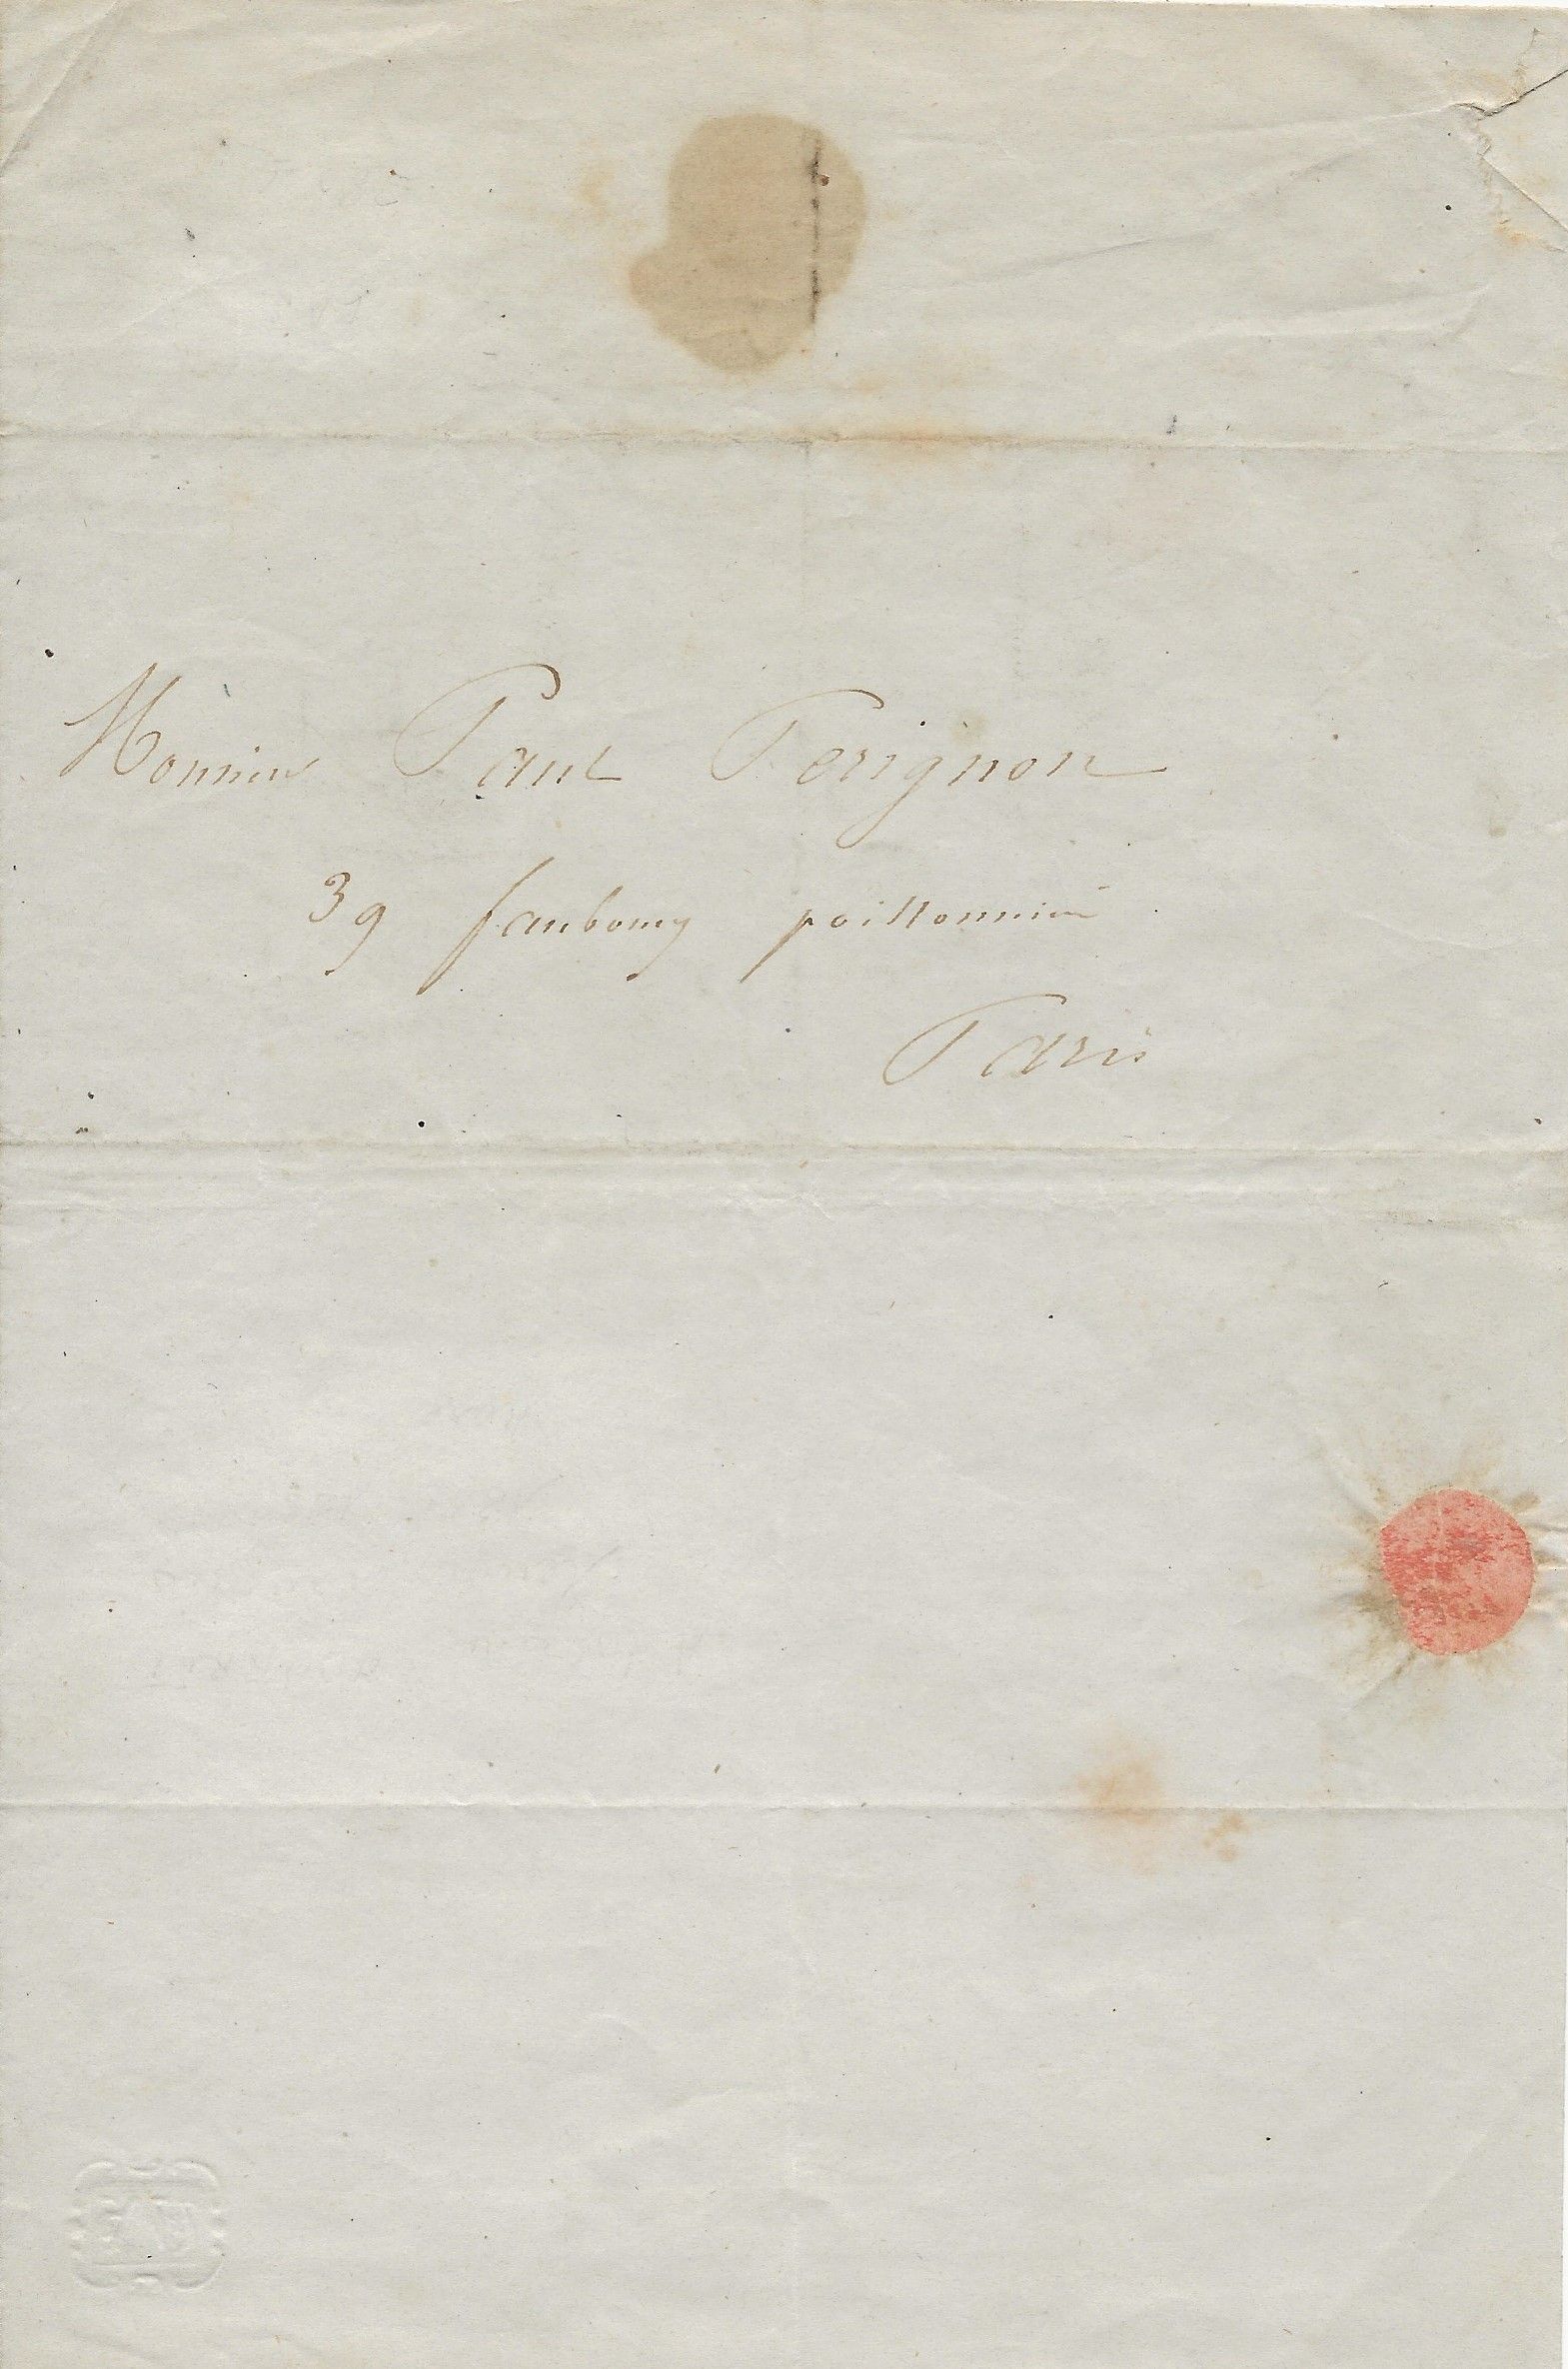 Monsieur Paul Perignon
39 faubourg poissonnière
Paris